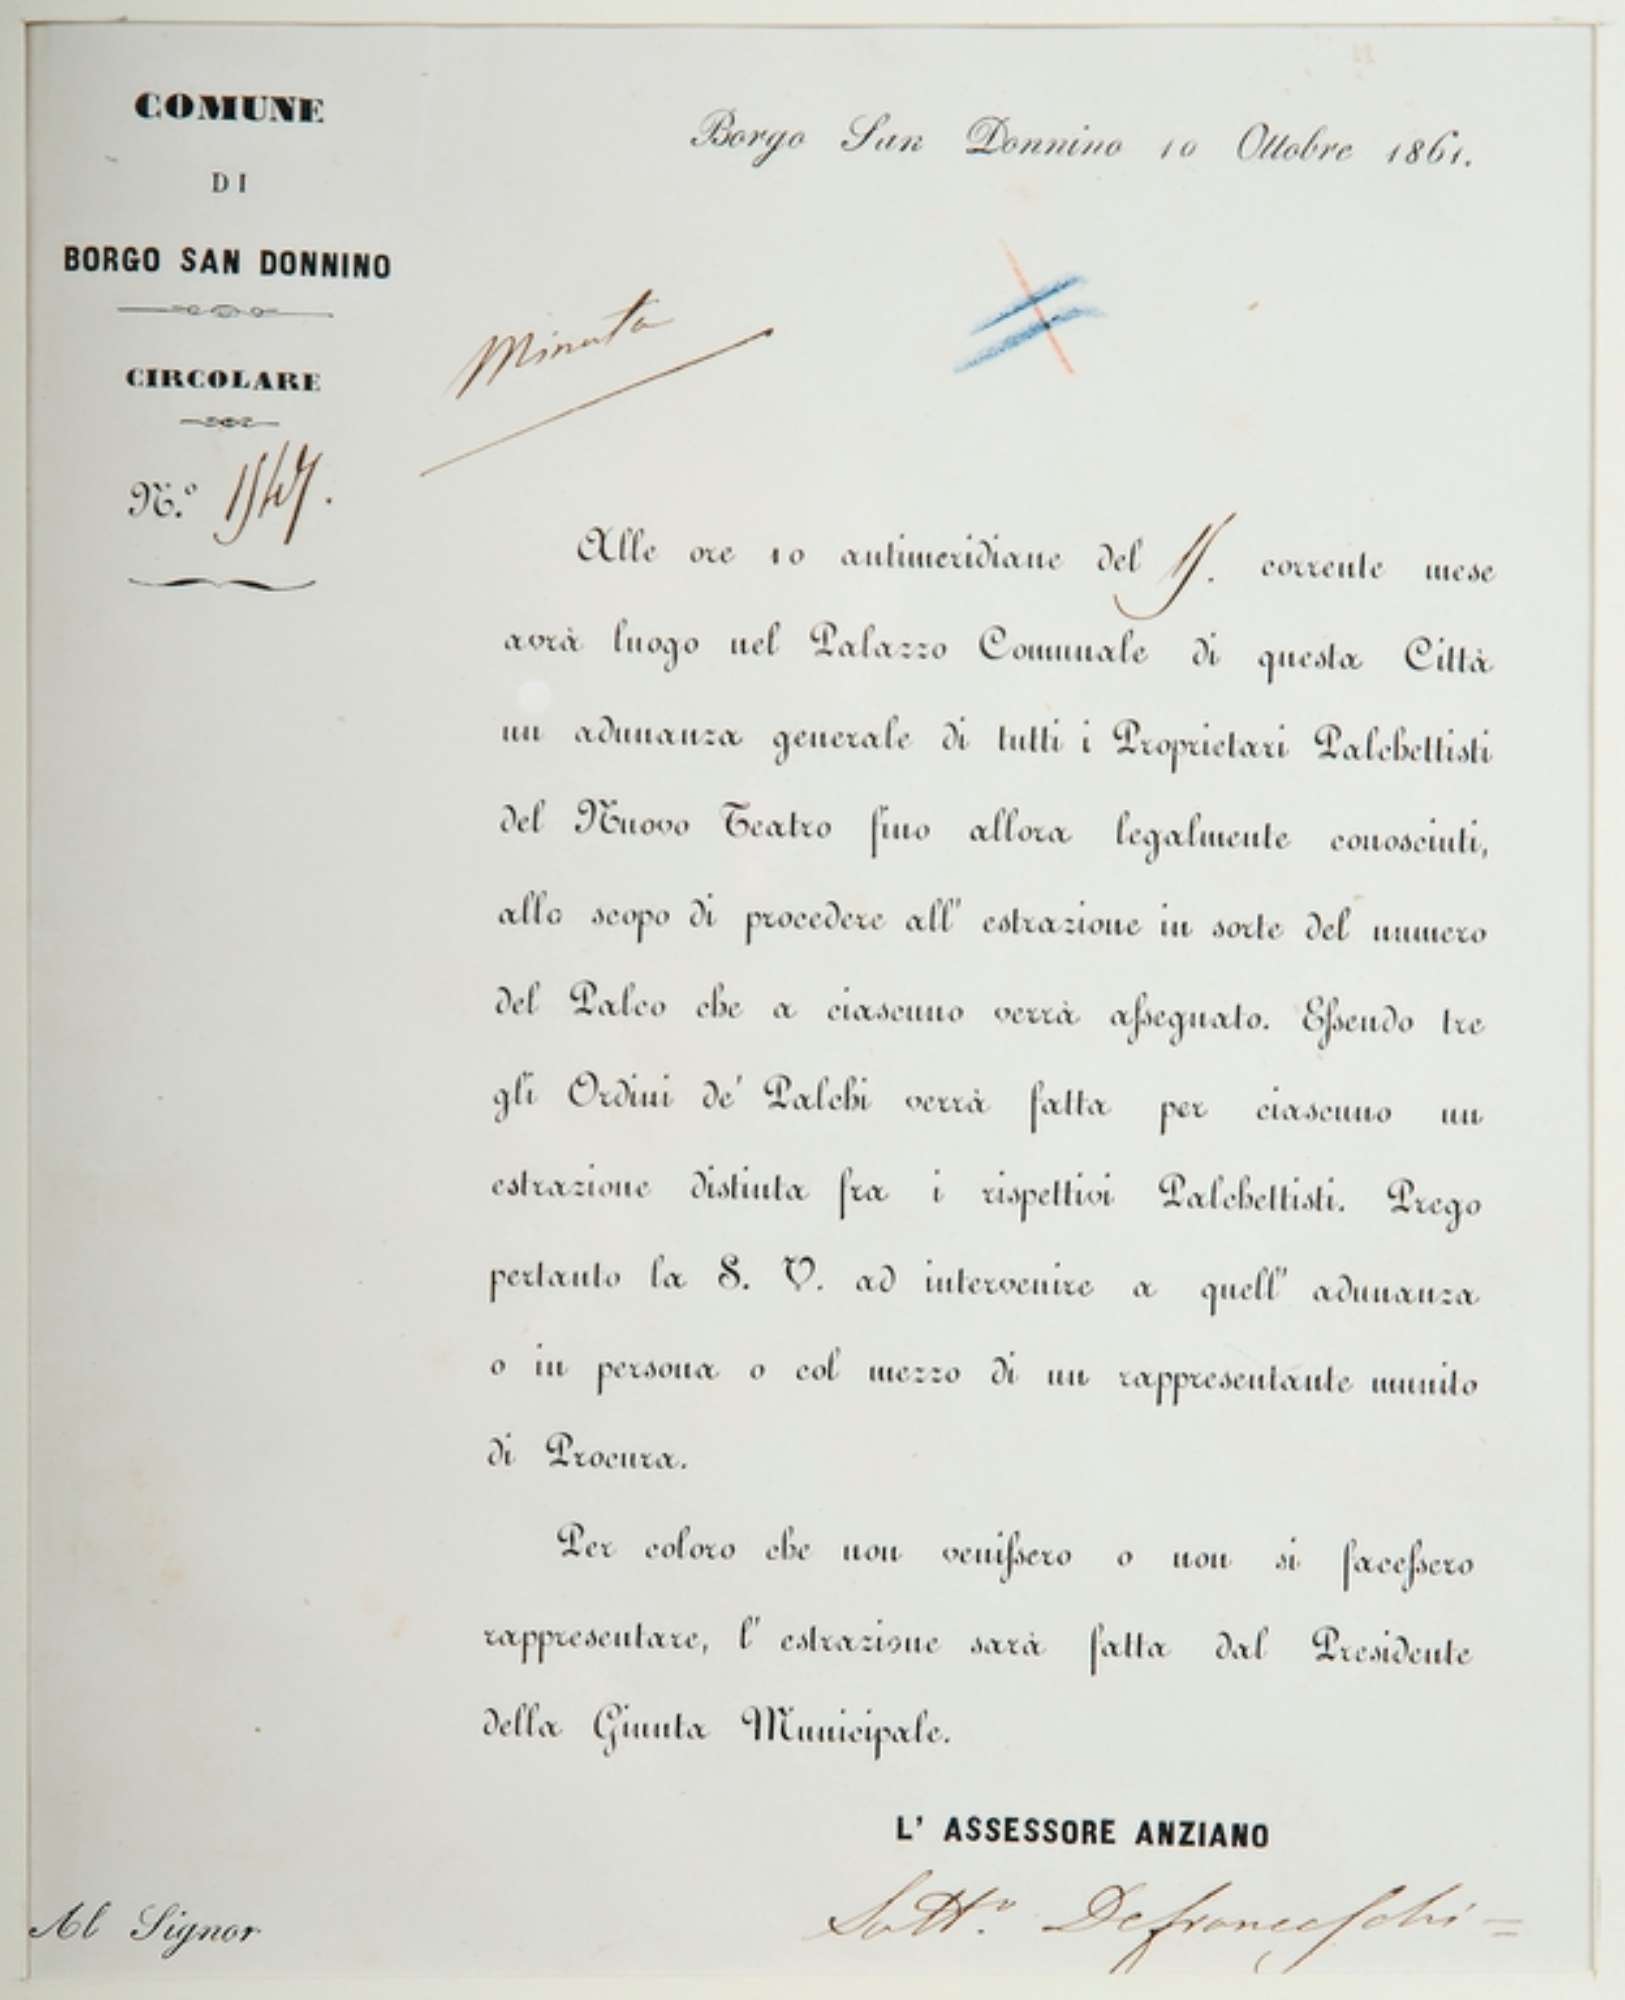 COMUNE
DI
BORGO SAN DONNINO
CIRCOLARE
N.º 1547.
Borgo San Donnino 10 Ottobre 1861.
Minuta
Alle ore 10 antimeridiane del 15. corrente mese
avrà luogo nel Palazzo Comunale di questa Città
un adunanza generale di tutti i Proprietari Palchettisti
del Nuovo Teatro fino allora legalmente conosciuti,
allo scopo di procedere all' estrazione in sorte del numero
del Palco che a ciascuno verrà assegnato. Essendo tre
gli Ordini de' Palchi verrà fatta per ciascuno un
estrazione distinta fra i rispettivi Palchettisti. Prego
pertanto la S. V. ad intervenire a quell' adunanza
o in persona o col mezzo di un rappresentante munito
di Procura.
Per coloro che non venissero o non si facessero
rappresentare, l' estrazione sarà fatta dal Presidente
della Giunta Municipale.
L' ASSESSORE ANZIANO
Sott.º Defranceschi =
Al Signor